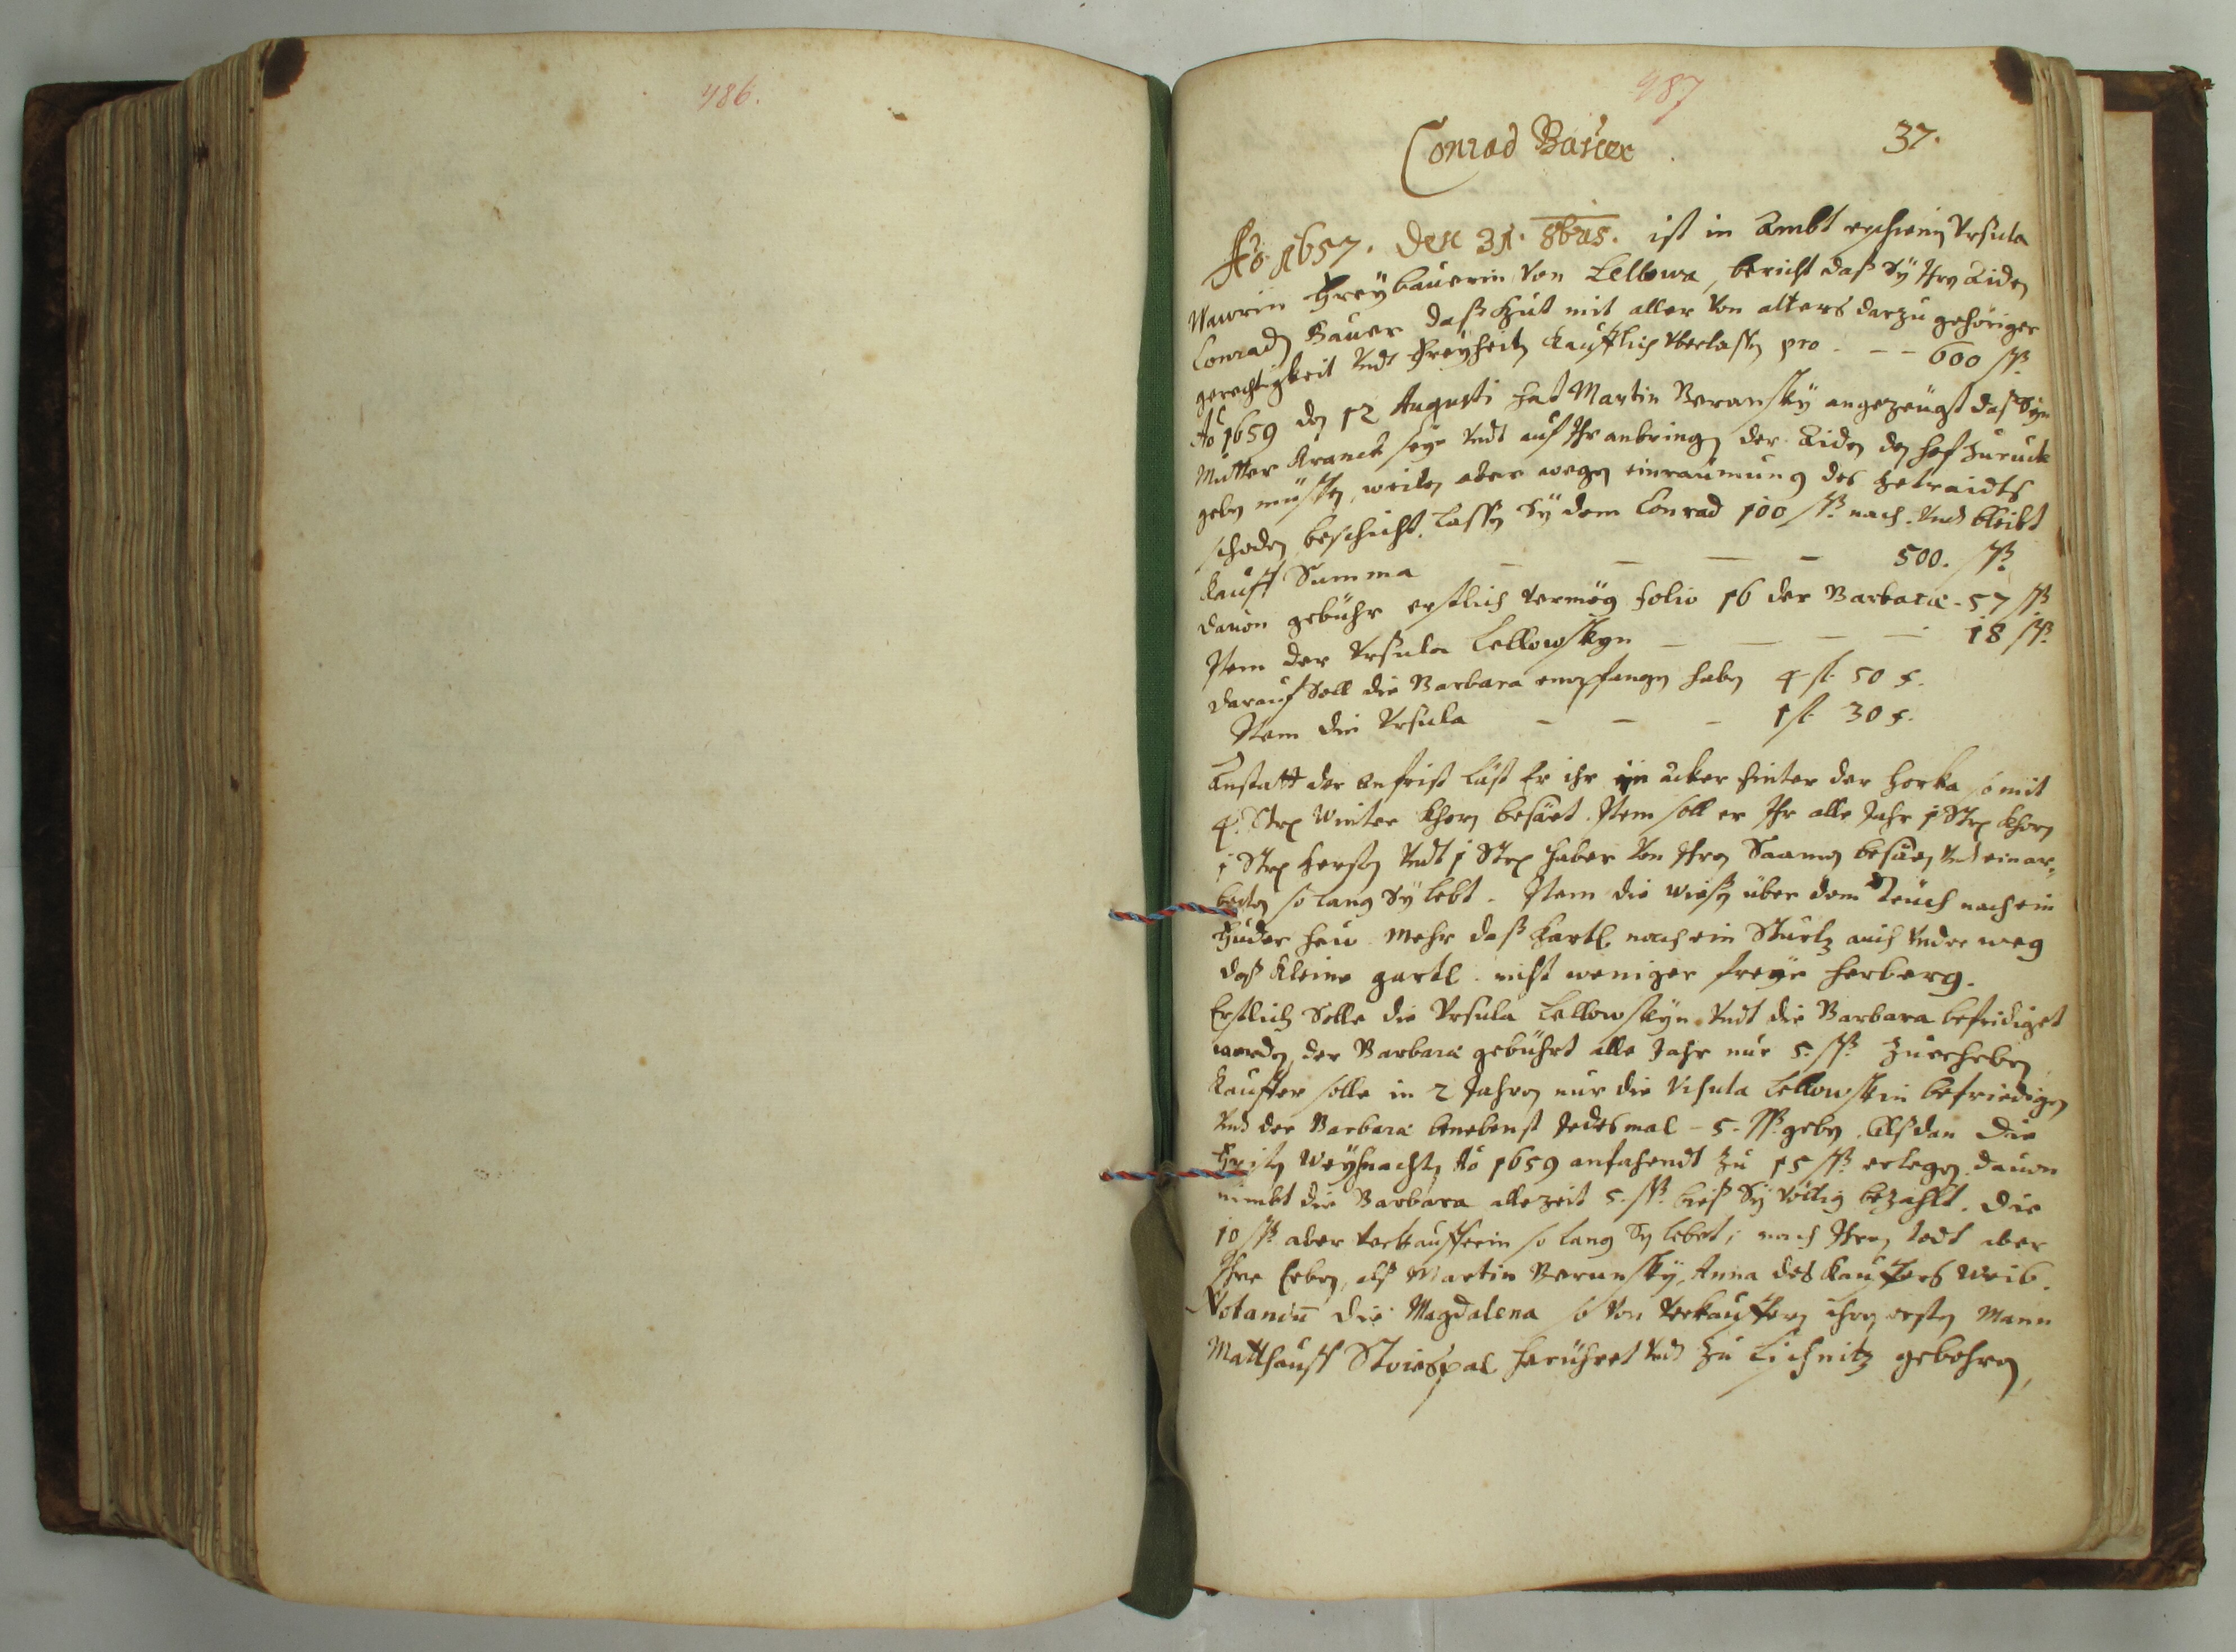 486.
487
37.
Conrad Bauer
Ao. 1657. Den 31. 8bris. ist in Ambt erschienen Ursula
Wawrin Freybauerin von Lellowa, bericht daß Sy Ihren Aiden
Conraden Bauer daß Gut mit aller von alters darzu gehöriger
gerechtigkeit undt Freyheiten kaufflich uberlassen pro - - - 600 ß
Ao 1659 den 12 Augusti hat Martin Beransky angezeügt das Seyn
Mutter kranck seye undt auf Ihr anbringen der Aiden den hof zuruck
geben müssen, weilen aber wegen einraümung des getraidts
schaden beschicht. Lassen Sy dem Conrad 100 ß nach. Und bleibt
Kauff Summa - - - - 500. ß
davon gebühr erstlich vermög Folio 16 der Barbara - 57 ß
Item der Ursula Lellowskyn - - - - 18 ß
darauf Soll die Barbara empfangen haben 4 fl. 50
Item die Ursula - - - 1 fl 30
Anstatt der anfrist läst Er ihr ein acker hinter der Horka so mit
4. Str Winter Khorn besäet. Item soll er Ihr alle Jahr 1 Str Khorn
1 Str Gersten undt 1 Str Haber von Ihren Saamen besäen und einar-
beiten so lang Sy lebt. Item die wiesen über dem Teuch nach ein
Fuder heu mehr daß Gartl nach ein
daß kleine gartl. nicht weniger freye herberg.
Erstlich Solle die Ursula Lellowskyn undt die Barbara befridiget
werden, der Barbara gebührt alle Jahr nur 5. ß zuerheben
Kauffer solle in 2 Jahren nur die Ursula Lellowskin befriedigen
und der Barbara benebenst Jedesmal - 5. ß geben. Alsdan die
Fristen Weyhnachten Ao 1659 anfahendt zu 15 ß erlegen davon
nimbt die Barbara allezeit 5. ß bieß Sy völlig bezahlt. die
10 ß aber verkaufferin so lang Sy lebet, nach Ihren todt aber
Ihre Erben, alß Martin Beransky, Anna des Kauffers weib.
Notandu die Magdalena so von verkauffern ihren ersten Mann
Matthauß herühret und zu Lichnitz gebohren,